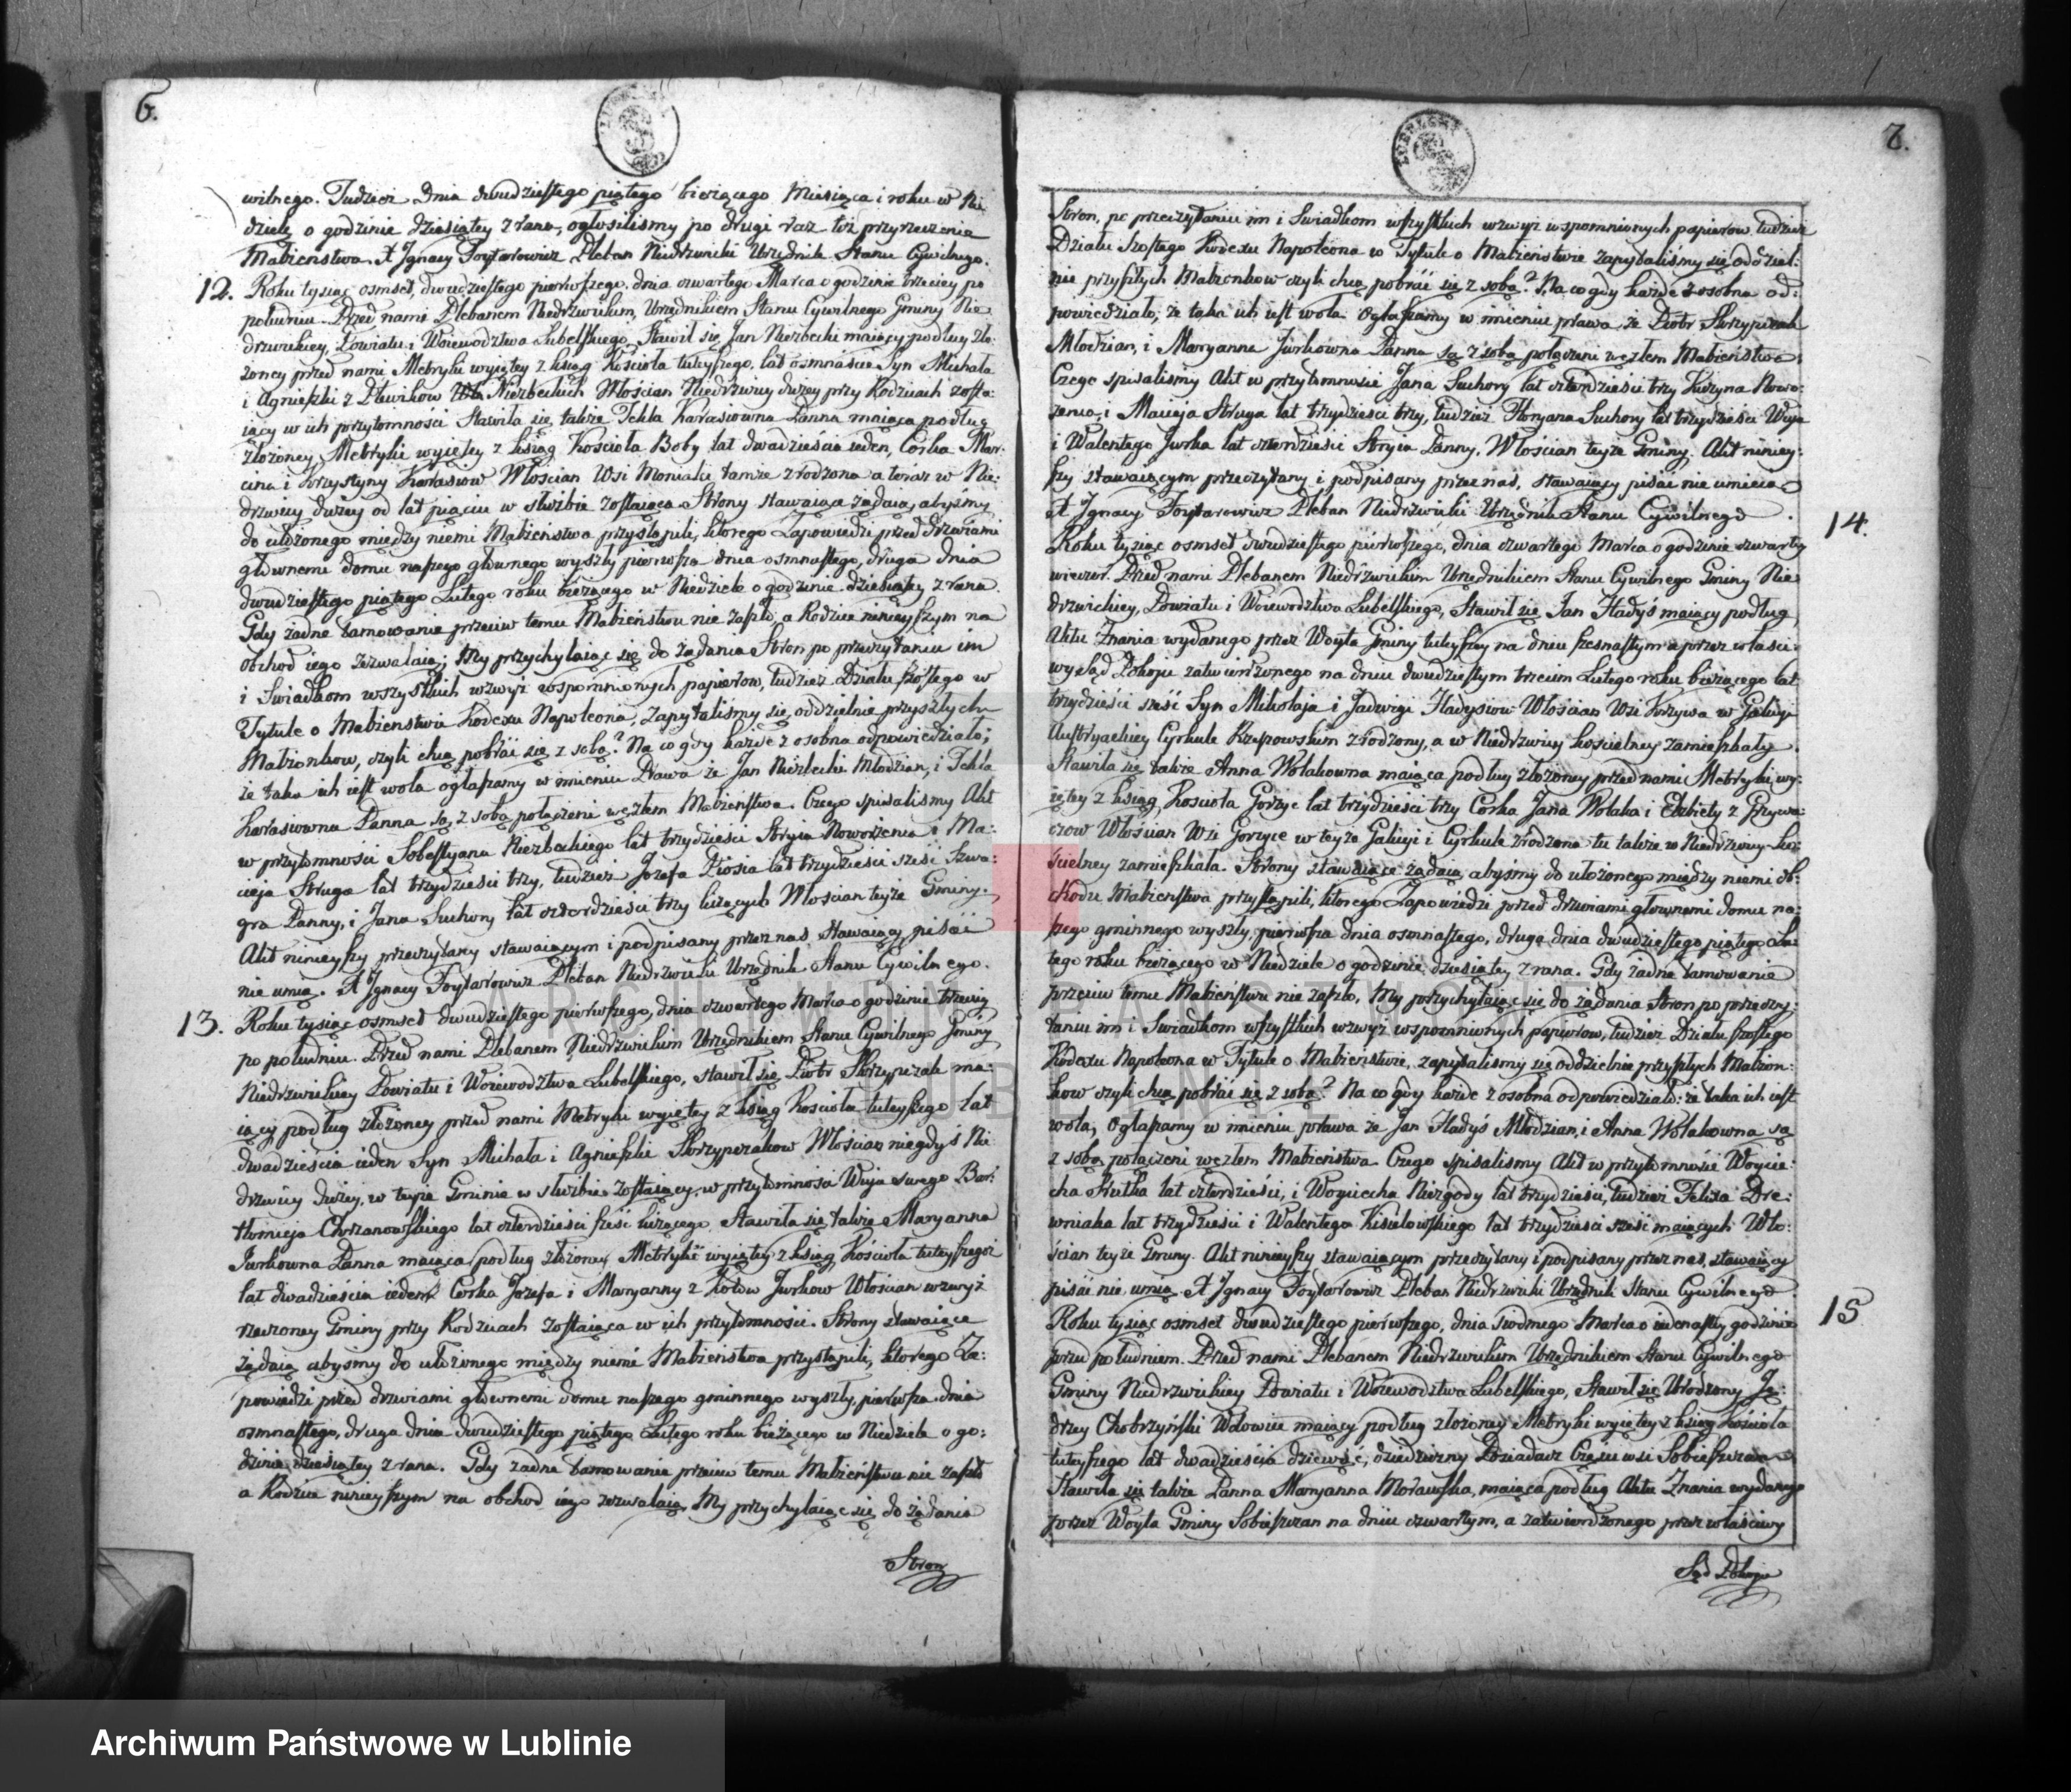 6.
wilnego. Tudzież Dnia dwudziestego piątego bieżącego Miesiąca i roku w Nie
dzielę o godzinie dziesiątey z rana, ogłosiliśmy po drugi raz też przyrzeczenie
Małżeństwa. X Jgnacy Pleban Niedrzwicki Urzędnik Stanu Cywilnego.
12. Roku tysiąc osmset dwudziestego pierwszego, dnia czwartego Marca o godzinie trzeciey po
południu. Przed nami Plebanem Niedrzwickim, Urzędnikiem Stanu Cywilnego Gminy Nie
drzwickiey, Powiatu i Woiewodztwa Lubelskiego, Stawił się Jan Niezbecki maiący podług zło:
żoney przed nami Metryki wyiętey z ksiąg Kościoła tuteyszego, lat osmnaście Syn Michała
i Agnieszki z Niezbeckich Włościan Niedrzwicy dużey przy Rodzicach zosta:
iący w ich przytomności Stawiła się także Tekla Karasiowna Panna maiąca podług
złożoney Metryki wyiętey z ksiąg Kościoła Boby lat dwadzieścia ieden, Corka Mar:
cina i Krystyny Karasiow Włościan Wsi Moniaki tamże zrodzona a teraz w Nie:
drzwicy dużey od lat pięciu w służbie zostaiąca. Strony stawaiące żądaią, abyśmy
do ułożonego między niemi Małżeństwa przystąpili, ktorego Zapowiedzi przed drzwiami
głównemi domu naszego głownego wyszły pierwsza dnia osmnastego, druga dnia
dwudziestego piątego Lutego roku bieżącego w Niedziele o godzinie dziesiątey z rana.
Gdy żadne tamowanie przeciw temu Małżeństwu nie zaszło, a Rodzice ninieyszym na
obchod iego zezwalaią; My przychylaiąc się do żądania Stron po przeczytaniu im
i Swiadkom wszystkich wzwyż wspomnionych papierow, tudzież Działu szóstego w
Tytule o Małżenstwie Kodexu Napoleona, Zapytaliśmy się oddzielnie przyszłych
Małżonkow, czyli chcą pobrać się z sobą? Na co gdy każde z osobna odpowiedziało;
że taka ich iest wola ogłaszamy w imieniu Prawa że Jan Niezbecki Młodzian, i Tekla
Karasiowna Panna są z sobą połączeni węzłem Małżeństwa. Czego spisaliśmy Akt
w przytomności Sobestyana Niezbeckiego lat trzydzieści Stryia Nowożenia i Ma:
cieja Struga lat trzydzieści trzy, tudzież Jozefa Piosia lat trzydzieści sześć Szwa:
gra Panny, i Jana Suchory lat czterdzieści trzy liczących Włościan teyże Gminy.
Akt ninieyszy przeczytany stawaiącym i podpisany przez nas, Stawaiący pisać
nie umią. X Jgnacy Pleban Niedrzwicki Urzędnik Stanu Cywilnego.
13. Roku tysiąc osmset dwudziestego pierwszego, dnia czwartego Marca o godzinie trzeciey
po południu. Przed nami Plebanem Niedrzwickim Urzędnikiem Stanu Cywilnego Gminy
Niedrzwickiey Powiatu i Woiewodztwa Lubelskiego, stawił się Piotr Skrzypczak ma:
iący podług złożoney przed nami Metryki wyiętey z ksiąg Kościoła tuteyszego lat
dwadzieścia ieden Syn Michała i Agnieszki Skrzypczakow Włościan niegdyś Nie
drzwicy dużey, w teyże Gminie w służbie zostaiący, w przytomności Wuja swego Bar:
tłomieja Chrzanowskiego lat czterdzieści sześć liczącego, Stawiła się także Maryanna
Jurkowna Panna maiąca podług złożoney Metryki wyiętey z ksiąg Kościoła tuteyszego
lat dwadzieścia ieden Corka Jozefa i Maryanny z Jurkow Włościan wzwyż
rzeczoney Gminy przy Rodzicach zostaiąca w ich przytomności. Strony stawaiące
żądaią abysmy do ułożonego między niemi Małżeństwa przystąpili, ktorego Za:
powiedzi przed drzwiami głównemi domu naszego gminnego wyszły, pierwsza dnia
osmnastego, druga dnia dwudziestego piątego Lutego roku bieżącego w Niedziele o go:
dzinie dziesiątey z rana. Gdy żadne tamowanie przeciw temu Małżeństwu nie zaszło
a Rodzice ninieyszym na obchod iego zezwalaią, My przychylaiąc się do żądania
Stron
7.
Stron, po przeczytaniu im i Swiadkom wszystkich wzwyż wspomnionych papierow, tudzież
Działu szostego Kodexu Napoleona w Tytule o Małżeństwie Zapytaliśmy się oddziel:
nie przyszłych Małżonkow czyli chcą pobrać się z sobą? Na co gdy każde z osobna od:
powiedziało; że taka ich iest wola. Ogłaszamy w imieniu prawa, że Piotr Skrzypczak
Młodzian, i Maryanna Jurkowna Panna są z sobą połączeni węzłem Małżeństwa.
Czego spisaliśmy Akt w przytomności Jana Suchory lat czterdzieści trzy Kuzyna Nowo:
żenia, i Macieja Struga lat trzydzieści trzy, tudzież Floryana Suchory lat trzydzieści Wuja
i Walentego Jurka lat czterdzieści Stryia Panny, Włościan teyże Gminy. Akt niniey:
szy stawaiącym przeczytany i podpisany przez nas, stawaiący pisać nie umieią
X Jgnacy Pleban Niedrzwicki Urzędnik Stanu Cywilnego.
14.
Roku tysiąc osmset dwudziestego pierwszego, dnia czwartego Marca o godzinie czwartey
wieczor. Przed nami Plebanem Niedrzwickim Urzędnikiem Stanu Cywilnego Gminy Nie
drzwickiey, Powiatu i Woiewodztwa Lubelskiego, Stawił się Jan Hadyś maiący podług
Aktu Znania wydanego przez Woyta Gminy tuteyszey na dniu szesnastym a przez właści:
wy Sąd Pokoju zatwierdzonego na dniu dwudziestym trzecim Lutego roku bieżącego lat
trzydzieści sześć Syn Mikołaja i Jadwigi Hadysiow Włościan Wsi Krzywa w Galicyi
Austryackiey Cyrkule Rzeszowskim zrodzony, a w Niedrzwicy kościelney zamieszkały.
Stawiła się także Anna Wolakowna maiąca podług złożoney przed nami Metryki wy:
iętey z ksiąg Kościoła Gorzyc lat trzydzieści trzy Corka Jana Wolaka i Elżbiety z Grzywa:
czow Włościan Wsi Gorzyce w teyże Galicyi i Cyrkule zrodzona tu także w Niedrzwicy koś:
cielney zamieszkała. Strony stawaiące żądaią abyśmy do ułożonego między niemi ob:
chodu Małżeństwa przystąpili, ktorego Zapowiedzi przed drzwiami głownemi domu na:
szego gminnego wyszły, pierwsza dnia osmnastego, druga dnia dwudziestego piątego Lu:
tego roku bieżącego w Niedziele o godzinie dziesiątey z rana. Gdy żadne tamowanie
przeciw temu Małżeństwu nie zaszło, My przychylaiąc się do żądania Stron po przeczy:
taniu im i Swiadkom wszystkich wzwyż wspomnionych papierow, tudzież Działu szostego
Kodexu Napoleona w Tytule o Małżeństwie, zapytaliśmy się oddzielnie przyszłych Małżon:
kow czyli chcą pobrać się z sobą? Na co gdy każde z osobna odpowiedziało: że taka ich iest
wola, Ogłaszamy w imieniu prawa że Jan Hadyś Młodzian, i Anna Wolakowna są
z sobą połączeni węzłem Małżeństwa. Czego spisaliśmy Akt w przytomności Woycie:
cha Hutka lat czterdzieści, i Woyciecha Niezgody lat trzydzieści, tudzież Felixa Drе:
wniaka lat trzydzieści i Walentego Kisielowskiego lat trzydzieści sześć maiących Wło:
ścian teyże Gminy. Akt ninieyszy stawaiącym przeczytany i podpisany przez nas, stawaiący
pisać nie umią. X Jgnacy Pleban Niedrzwicki Urzędnik Stanu Cywilnego.
15
Roku tysiąc osmset dwudziestego pierwszego, dnia siodmego Marca o iedenastey godzinie
przed południem. Przed nami Plebanem Niedrzwickim Urzędnikiem Stanu Cywilnego
Gminy Niedrzwickiey Powiatu i Woiewodztwa Lubelskiego, Stawił się Urodzony Ję:
drzey Chobrzyński Wdowiec maiący podług złożoney Metryki wyiętey z ksiąg Kościoła
tuteyszego lat dwadzieścia dziewięć, dziedziczny Posiadacz Części wsi Sobieszczan
Stawiła się także Panna Maryanna Morawska, maiąca podług Aktu Znania wydanego
przez Woyta Gminy Sobieszczan na dniu czwartym, a zatwierdzonego przez właściwy
Sąd Pokoju
ARCHIWUM PAŃSTWOWE
W LUBLINIE
Archiwum Państwowe w Lublinie